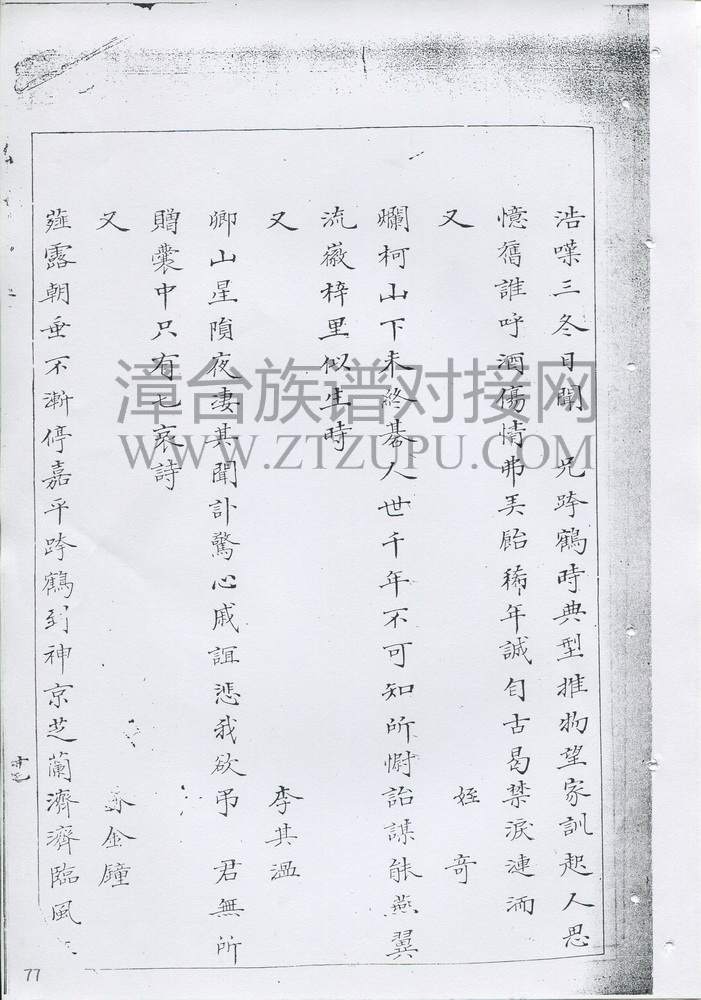 浩嘆三冬日聞　兄跨鶴時典型推物望家訓起人思
憶舊誰呼酒傷情弗美飴稀年誠自古曷禁淚漣洏
又　姪奇
爛柯山下未終棊人世千年不可知所慰詒謀能燕翼
流徽梓里似生時
又　李其溫
卿山星隕夜淒其聞訃驚心戚誼悲我欲弔　君無所
贈囊中只有七哀詩
又　金鐘
薤露朝垂不漸停嘉平跨鶴到神京芝蘭濟濟臨風
77
漳台族谱对接网
WWW.ZTZUPU.COM